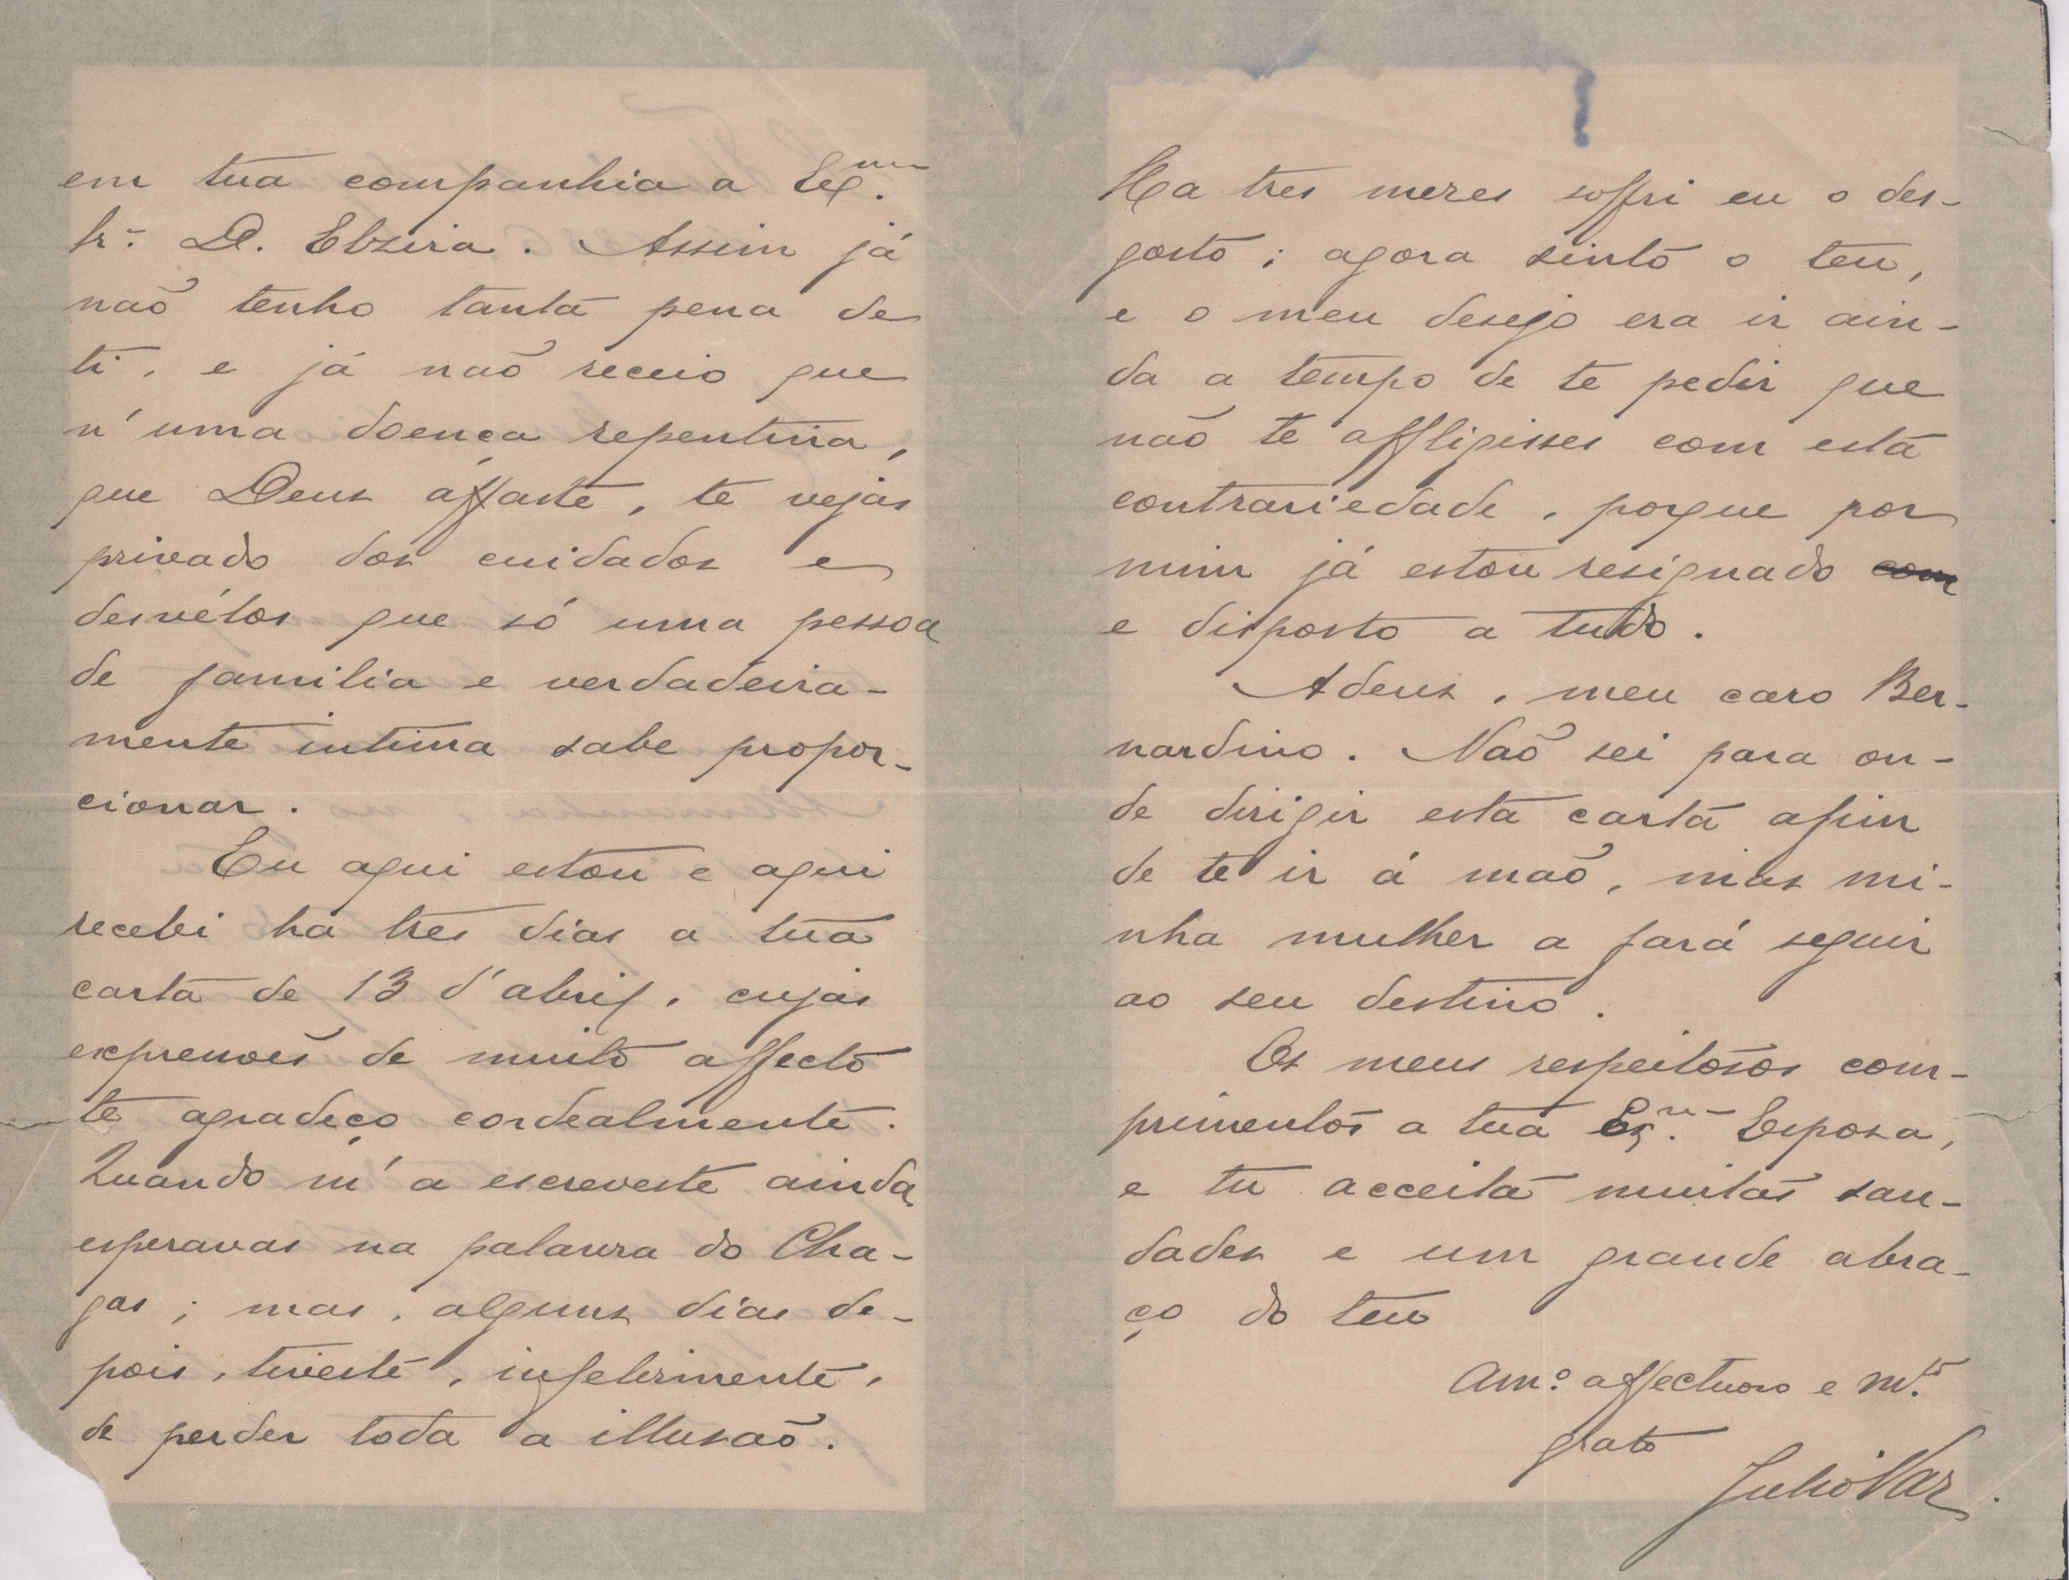 em tua companhia a Exma.
Sr.ª D. Elzira. Assim já
não tenho tanta pena de
ti, e já não receio que
n'uma doença repentina,
que Deus affaste, te vejas
privado dos cuidados e
desvélos que só uma pessoa
de familia e verdadeira-
mente intima sabe propor-
cionar.
Eu aqui estou e aqui
recebi ha tres dias a tua
carta de 13 d'abril, cujas
expressões de muito affecto
te agradeço cordealmente.
Quando m'a escreveste ainda
esperavas na palavra do Cha-
gas; mas, alguns dias de-
pois, tiveste, infelizmente,
de perder toda a illusão.
Ha tres mezes soffri eu o des-
gosto; agora sinto o teu,
e o meu desejo era ir ain-
da a tempo de te pedir que
não te affligisses com esta
contrariedade, porque por
mim já estou resignado com
e disposto a tudo.
Adeus, meu caro Ber-
nardino. Não sei para on-
de dirigir esta carta afim
de te ir á mão, mas mi-
nha mulher a fará seguir
ao seu destino.
Os meus respeitosos com-
primentos a tua Exma. Esposa,
e tu acceita muitas sau-
dades e um grande abra-
ço do teu
Am.º affectuoso e m.to
grato
Julio Vaz